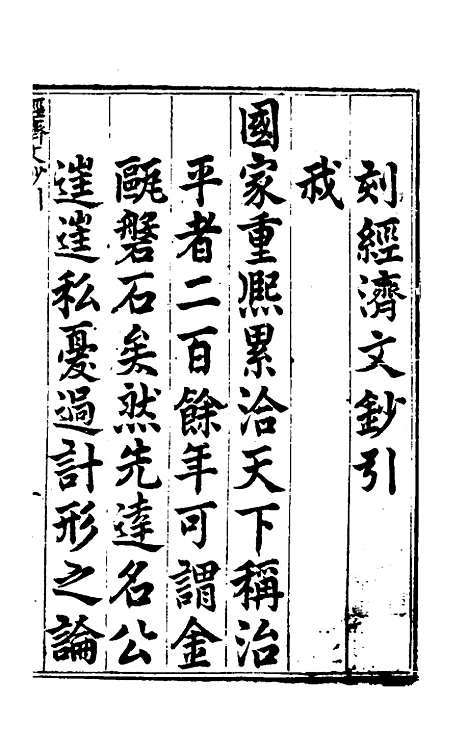 刻經濟文鈔引
我
國家重熈累洽天下稱治
平者二百餘年可謂金
甌磐石矣然先達名公
𨔶𨔶私憂過計形之論
經濟文鈔引